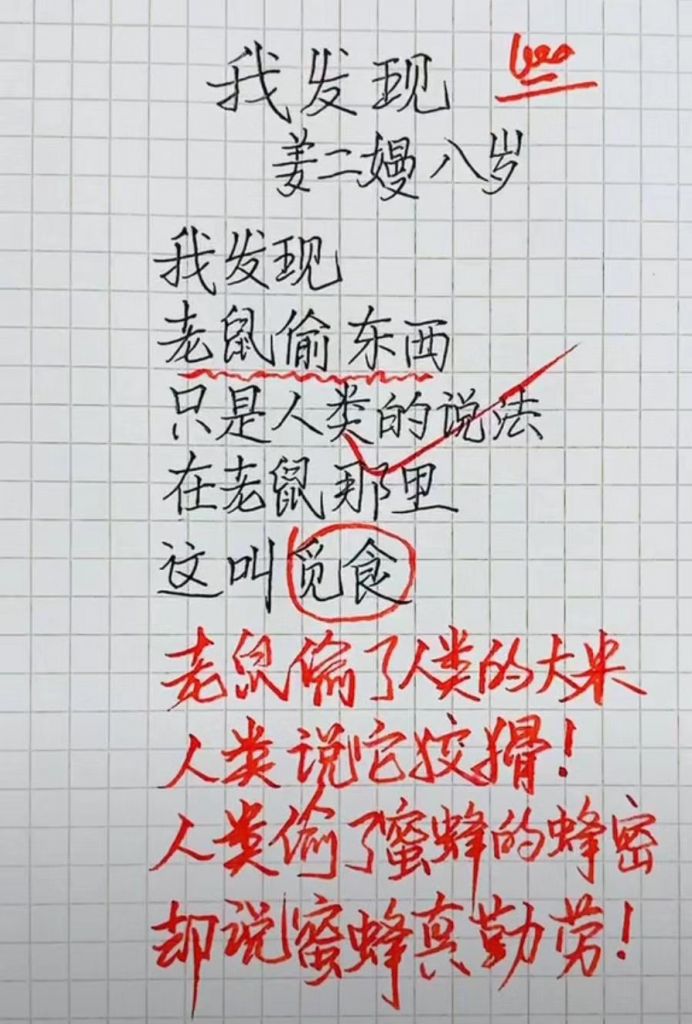 我发现
100
姜二嫚 八岁
我发现
老鼠偷东西
只是人类的说法
在老鼠那里
这叫觅食
老鼠偷了人类的大米
人类说它狡猾!
人类偷了蜜蜂的蜂密
却说蜜蜂真勤劳!